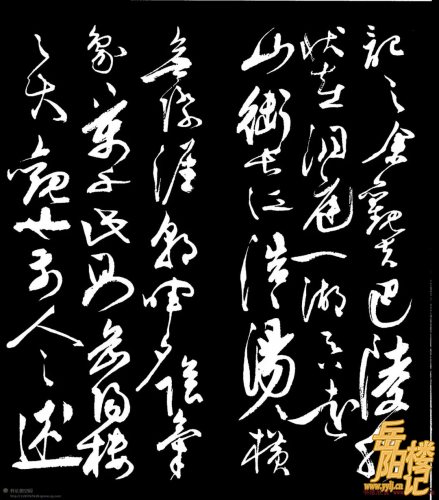 記之余觀夫巴陵勝
狀在洞庭一湖吞遠
山銜長江浩浩湯湯橫
無際涯朝暉夕陰氣
象萬千此則岳陽樓
之大觀也前人之述
岳阳楼记
www.yylj.cn